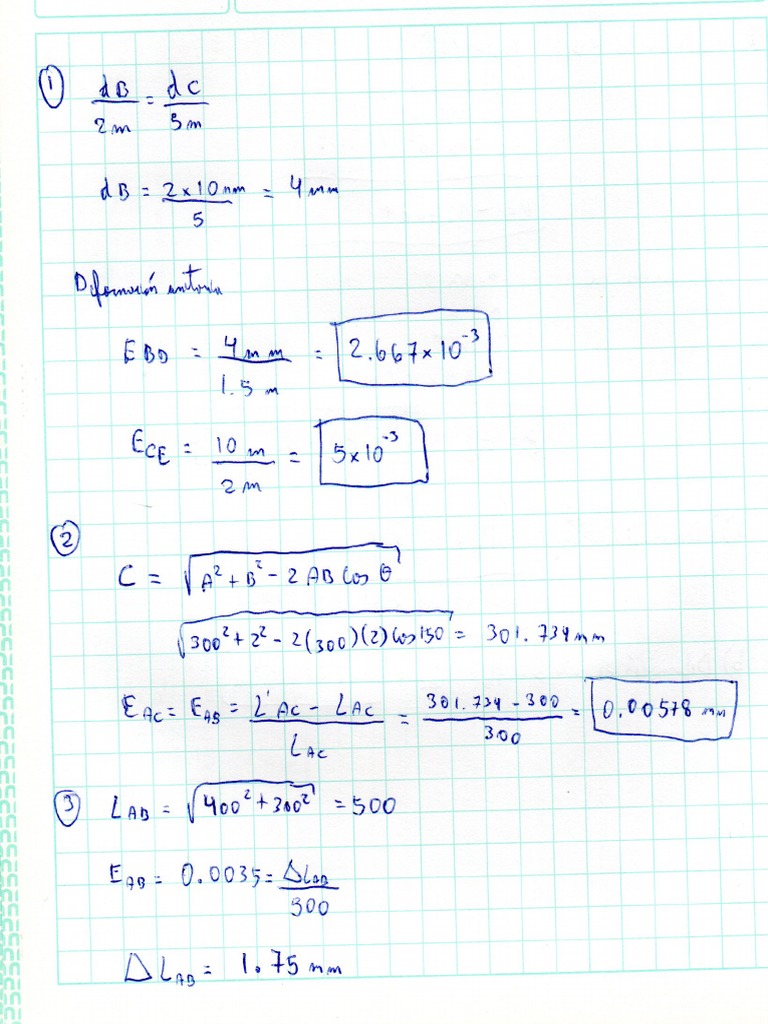 ① dB/2m = dC/5m
dB = 2×10mm/5 = 4mm
Deformación unitaria
E_BD = 4mm/1.5m = 2.667×10⁻³
E_CE = 10m/2m = 5×10⁻³
②
C = √(A² + B² - 2AB cos θ)
√(300² + 2² - 2(300)(2) cos 150) = 301.734mm
E_AC = E_AB = (L'AC - L_AC)/L_AC = (301.734 - 300)/300 = 0.00578 mm
③ L_AB = √(400² + 300²) = 500
E_AB = 0.0035 = ΔL_AB/500
ΔL_AB = 1.75 mm